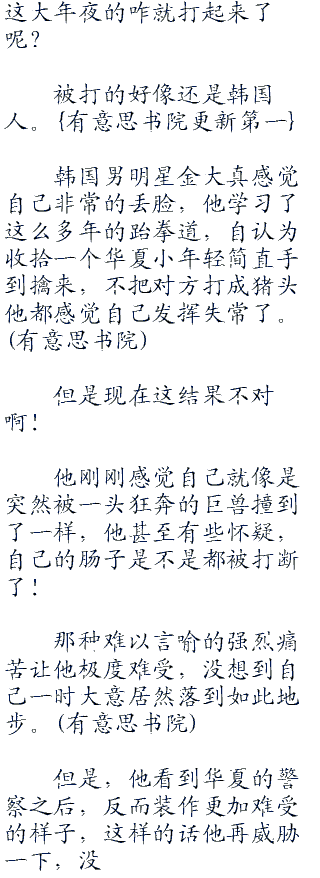 这大年夜的咋就打起来了
呢？
被打的好像还是韩国
人。{有意思书院更新第一}
韩国男明星金大真感觉
自己非常的丢脸，他学习了
这么多年的跆拳道，自认为
收拾一个华夏小年轻简直手
到擒来，不把对方打成猪头
他都感觉自己发挥失常了。
(有意思书院)
但是现在这结果不对
啊！
他刚刚感觉自己就像是
突然被一头狂奔的巨兽撞到
了一样，他甚至有些怀疑，
自己的肠子是不是都被打断
了！
那种难以言喻的强烈痛
苦让他极度难受，没想到自
己一时大意居然落到如此地
步。(有意思书院)
但是，他看到华夏的警
察之后，反而装作更加难受
的样子，这样的话他再威胁
一下，没